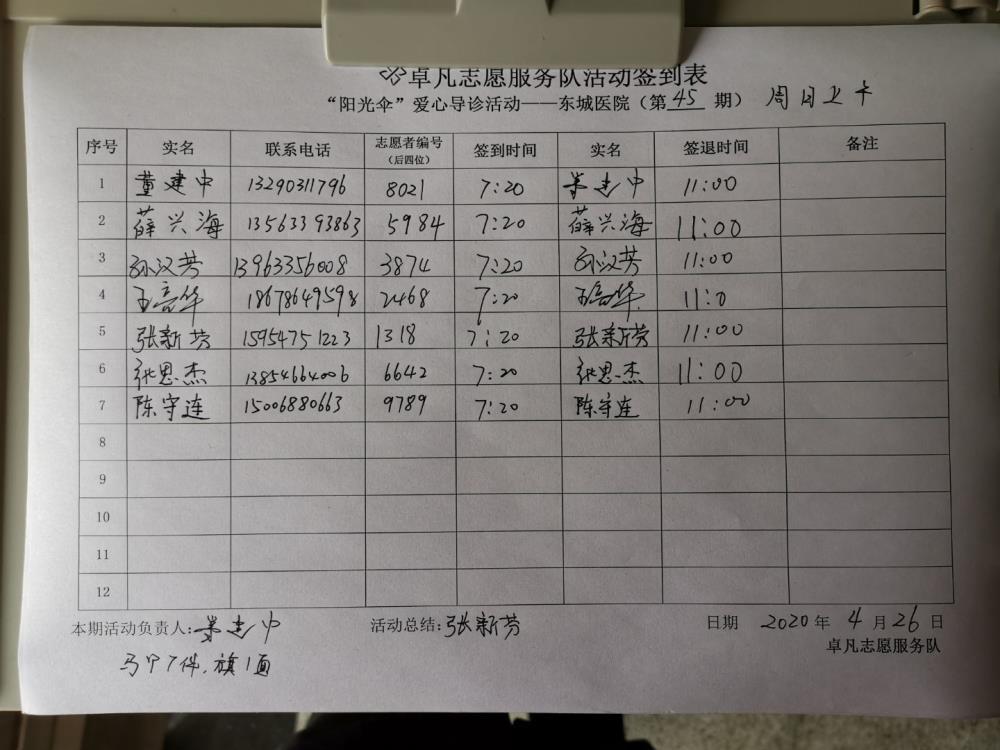 卓凡志愿服务队活动签到表
“阳光伞”爱心导诊活动——东城医院（第 45 期） 周日上午
序号 实名 联系电话 志愿者编号（后四位） 签到时间 实名 签退时间 备注
1 董建中 13290311796 8021 7:20 董建中 11:00
2 薛兴海 13563393863 5984 7:20 薛兴海 11:00
3 孙汉芳 13963356008 3874 7:20 孙汉芳 11:00
4 王高华 18678649598 2468 7:20 王高华 11:0
5 张新芳 15954751223 1318 7:20 张新芳 11:00
6 张思杰 13854664006 6642 7:20 张思杰 11:00
7 陈守连 15006880663 9789 7:20 陈守连 11:00
8
9
10
11
12
本期活动负责人:董建中 活动总结:张新芳 日期 2020 年 4 月 26 日
卓凡志愿服务队
马甲7件,旗1面